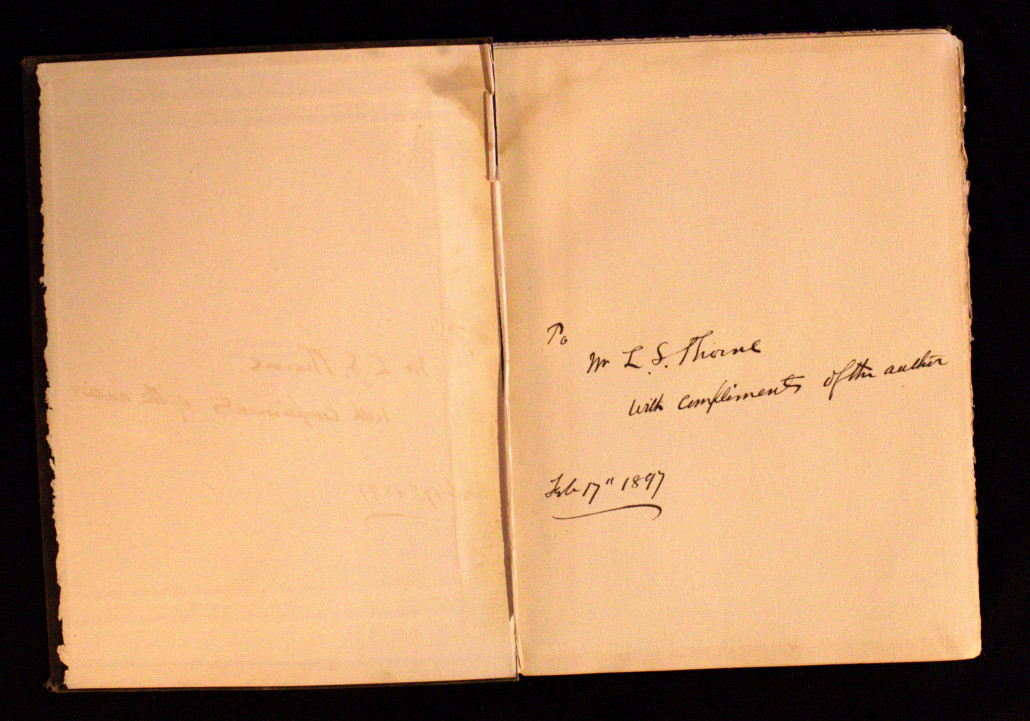 To
Mr L. S. Thorne
with compliments of the author
Feb 17" 1897